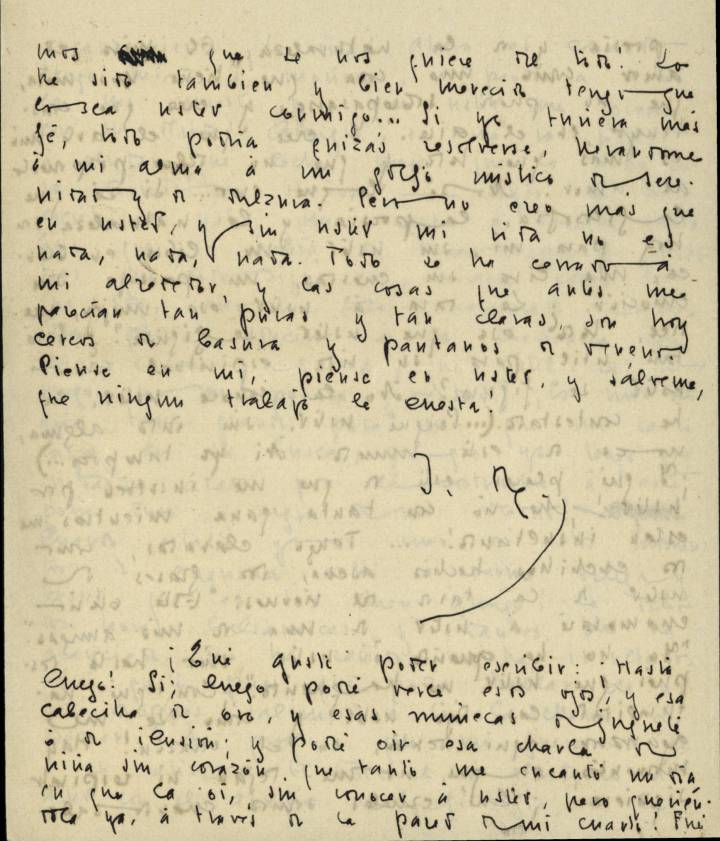 mos que se nos quiere del todo! Lo
he sido también y bien merecido tengo que
lo sea usted conmigo... Si yo tuviera más
fé, todo podría quizás resolverse, llevandome
á mi alma á un golfo místico de sere-
nidad y de dulzura. Pero no creo más que
en usted, y sin usted mi vida no es
nada, nada, nada. Todo se ha cerrado á
mi alrededor, y las cosas que antes me
parecían tan puras y tan claras, son hoy
cercos de basura y pantanos de veneno.
Piense en mí, piénse en usted, y sálveme,
que ningun trabajo le cuesta!
J. R.
¡Qué gusto poder escribir: ¡Hasta
luego! Si; luego podré verle esos ojos, y esa
cabecita de oro, y esas muñecas de juguete
ó de ilusión; y podré oir esa charla de
niña sin corazón, que tanto me encantó un día
en que la oí, sin conocer á usted, pero querién-
dola ya, á través de la pared de mi cuarto! Qué